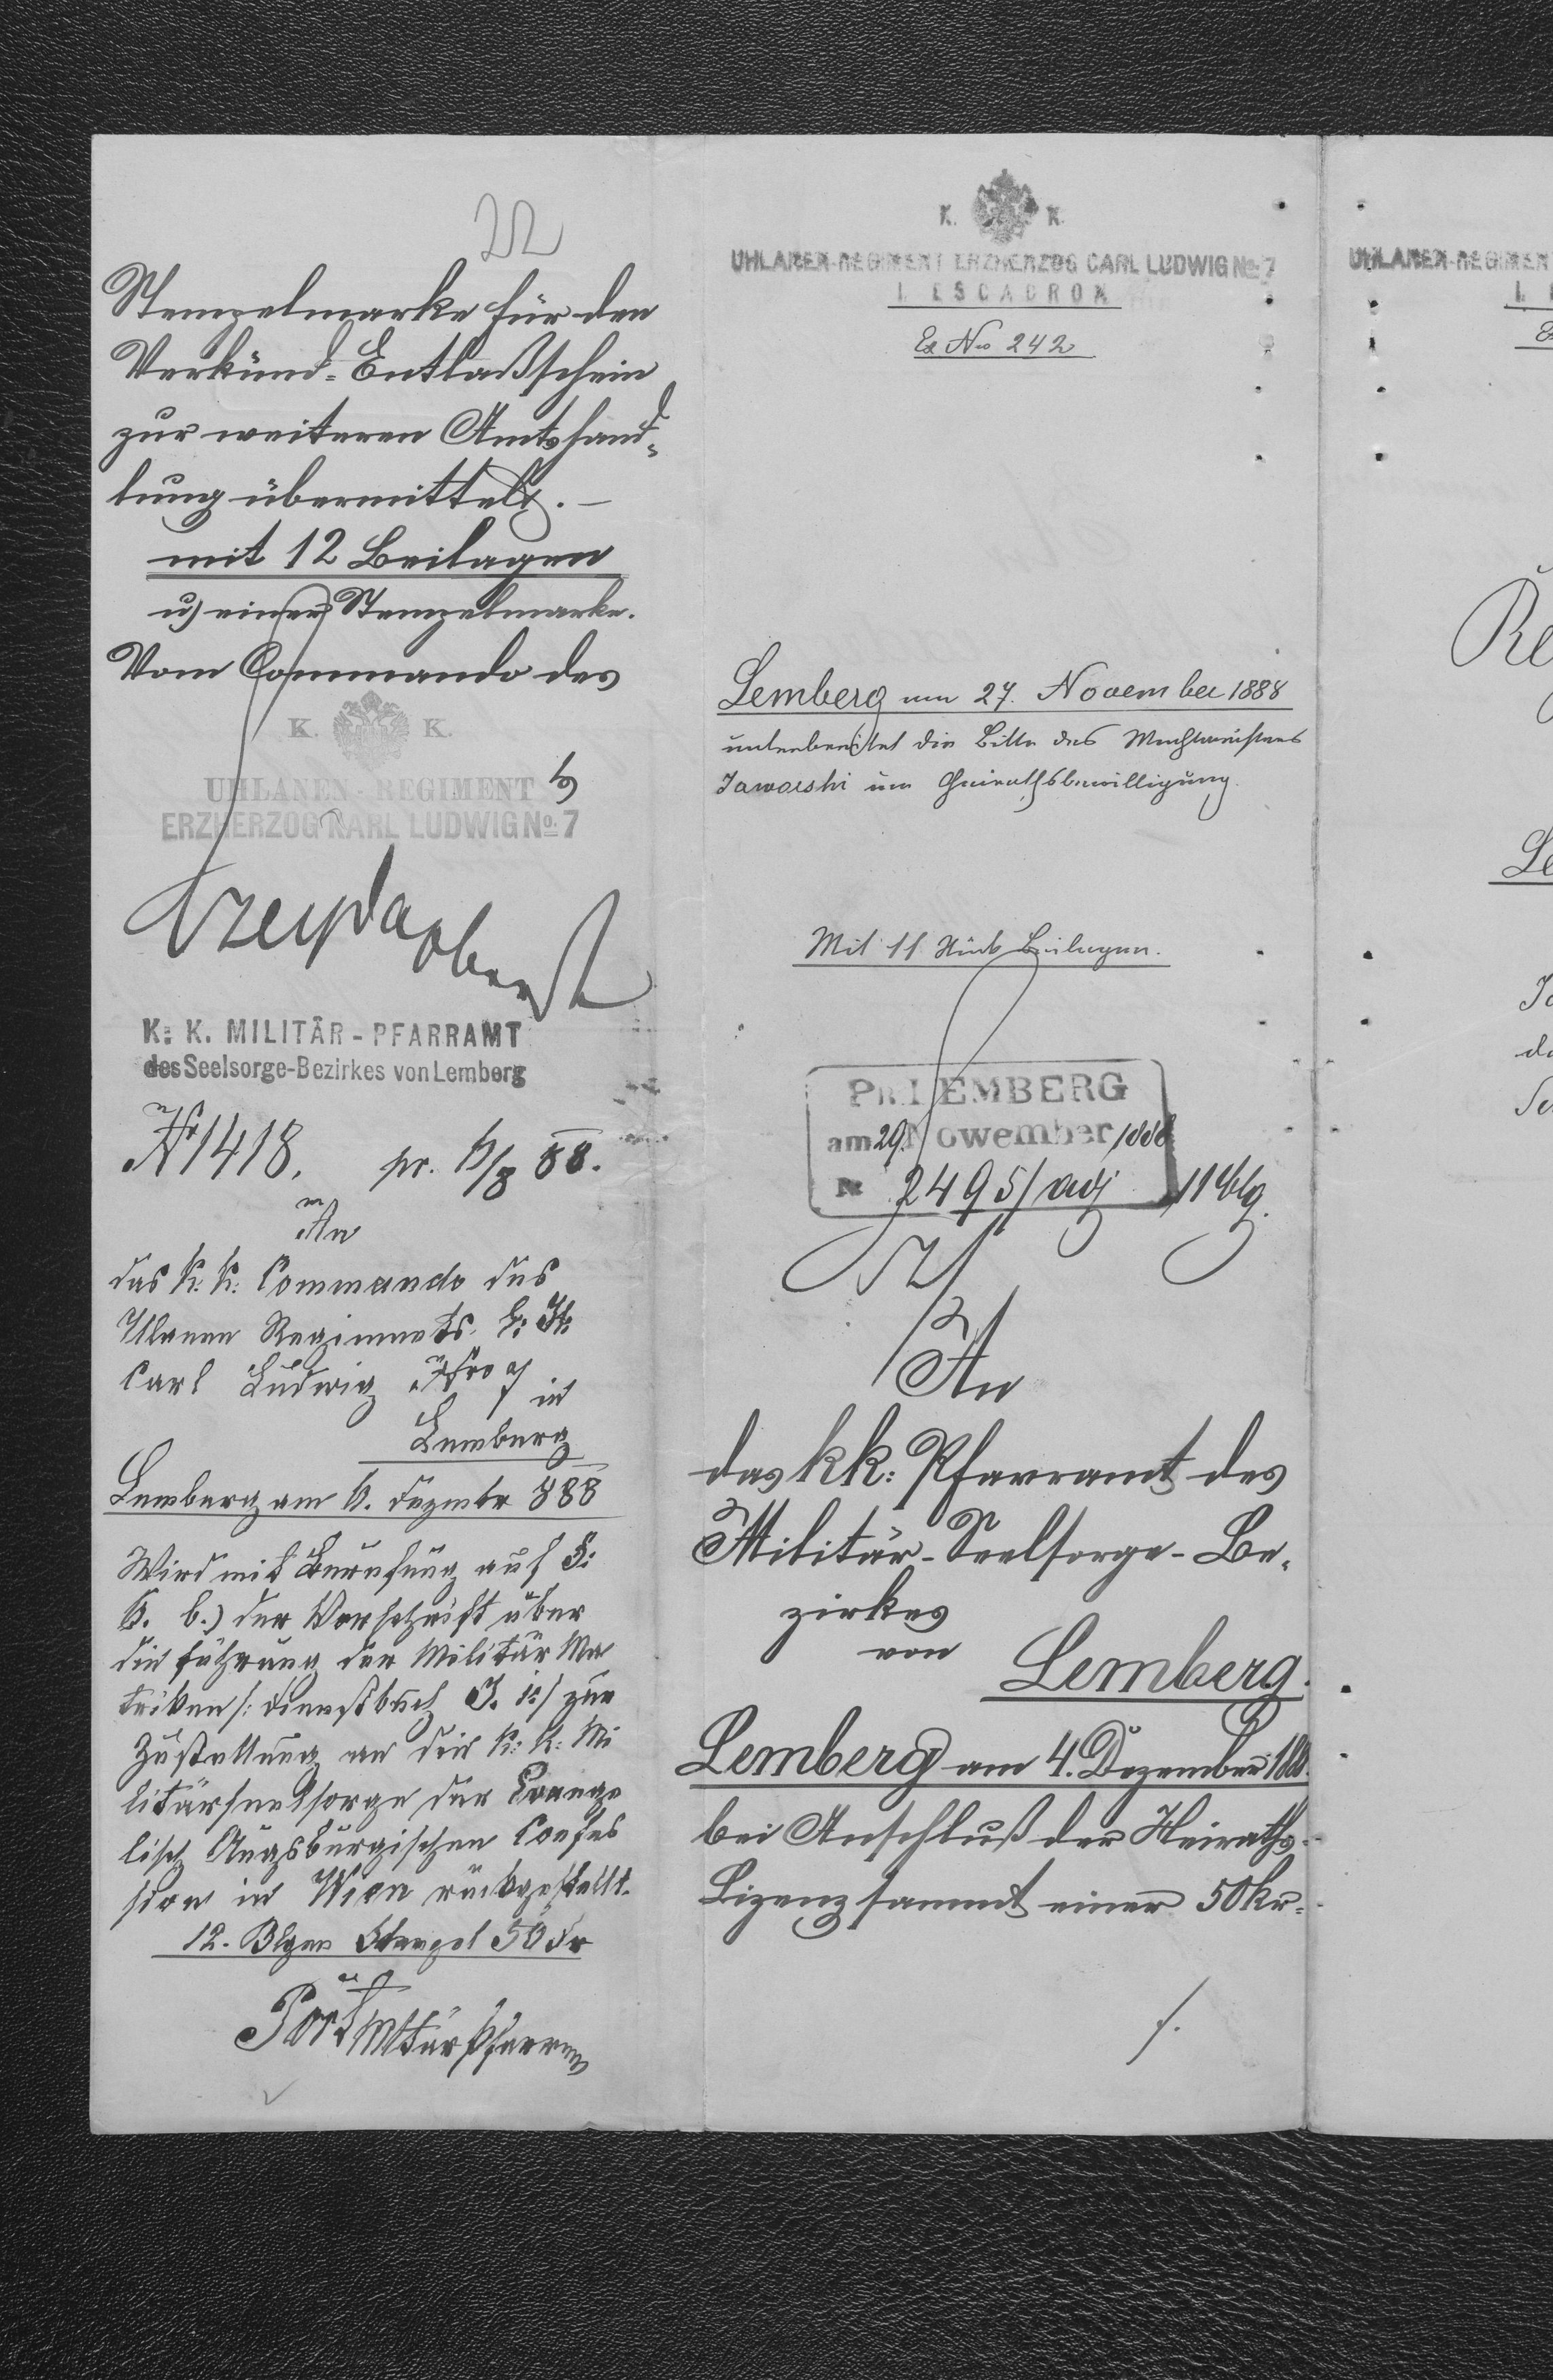 Stempelmarke für den
Verkünd-Entlaßschein
zur weiteren Amtshand-
lung übermittelt.-
mit 12 Beilagen
u) einer Stempelmarke.
Vom Commando des
K. K.
UHLANEN-REGIMENT
ERZHERZOG KARL LUDWIG No. 7
Oberst
K: K. MILITÄR-PFARRAMT
des Seelsorge-Bezirkes von Lemberg
Nr 1418. pr. 6/8 88.
An
das K: K: Commando des
Uhlanen Regiments E: H:
Carl Ludwig Nro 7 in
Lemberg
Lemberg am 6. Dezmbr 888
Wird mit Berufung auf §:
6. b.) der Vorschrift über
die Führung der Militär Ma
triken /: Dienstbuch J. 1:/ zur
Zustellung an die K: K: Mi
litärseelsorge der Evange
lisch Augsburgischen Confes
sion in Wien rückgestellt.
12. Blgen Stempel 50 Kr
Militärpfarrer
K. K.
UHLANEN-REGIMENT ERZHERZOG CARL LUDWIG No. 7
I. ESCADRON
Ex No 242
Lemberg am 27. November 1888
unterbreitet die Bitte des Wachtmeisters
Jaworski um Heirathsbewilligung.
Mit 11 Stück Beilagen.
Pr. LEMBERG
am 29. Nowember 1888
No 2495/adj 11 Blg.
An
das kk: Pfarramt des
Militär-Seelsorge-Be-
zirkes
von
Lemberg.
Lemberg am 4. Dezember 188
bei Anschluß der Heiraths-
Lizenz sammt einer 50kr-
/.
UHLANEN-REGIMEN
I.
Re
Le